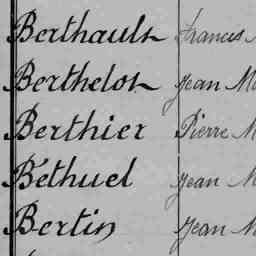 Berthault Francis M
Berthelot Jean Ma
Berthier Pierre M
Béthuel Jean M
Bertin Jean M